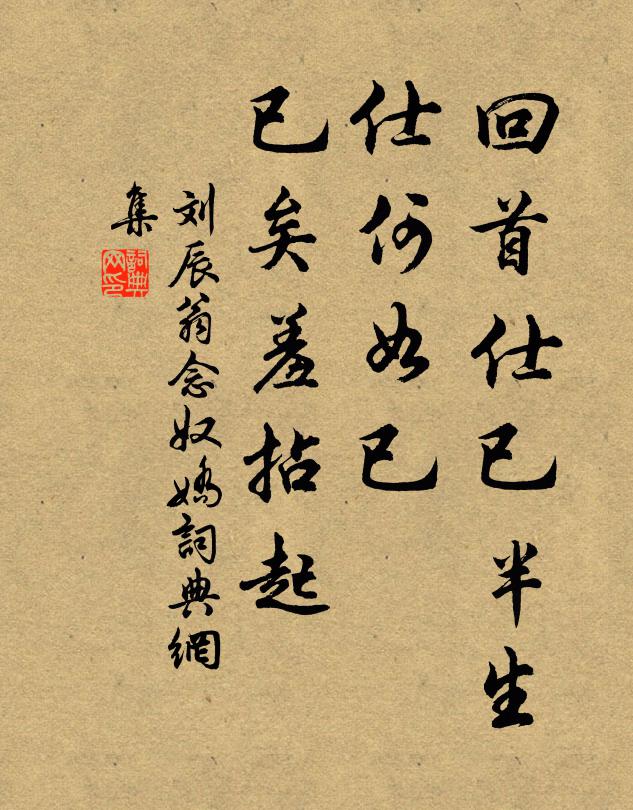 回首仕已半生
仕何如已
已矣羞拈起
刘辰翁念奴嬌詞典網
集
詞典
网印